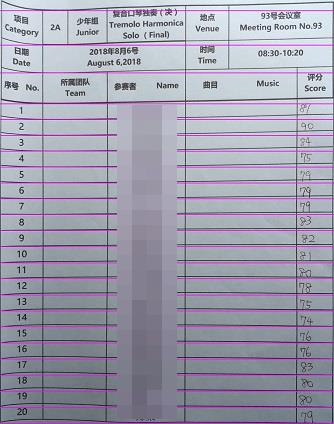 项目 Category 2A 少年组 Junior 复音口琴独奏（决） Tremolo Harmonica Solo（Final） 地点 Venue 93号会议室 Meeting Room No.93
日期 Date 2018年8月6号 August 6,2018 时间 Time 08:30-10:20
序号 No. 所属团队 Team 参赛者 Name 曲目 Music 评分 Score
1 81
2 90
3 84
4 75
5 79
6 79
7 79
8 83
9 82
10 81
11 80
12 78
13 75
14 74
15 76
16 76
17 83
18 80
19 80
20 79